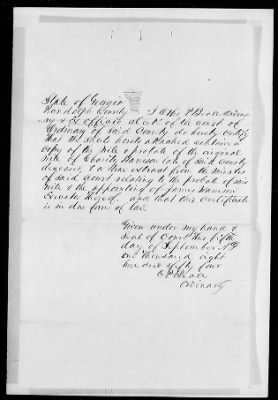 State of Georgia
Randolph County I O P Beall Ordina
ry & Ex Officio Clerk of the Court of
Ordinary of said County do hereby certify
that the sheets hereto attached contain a
copy of the Will & probate of the original
Will of Charity Harrison late of said County
deceased, & a true extract from the minutes
of said Court relating to the probate of said
Will & the appointing of James Harrison
Executor thereof, and that this certificate
is in due form of law.
Given under my hand &
seal of Court this fifth
day of September A.D.
one thousand eight
hundred & fifty four
O P Beall
Ordinary